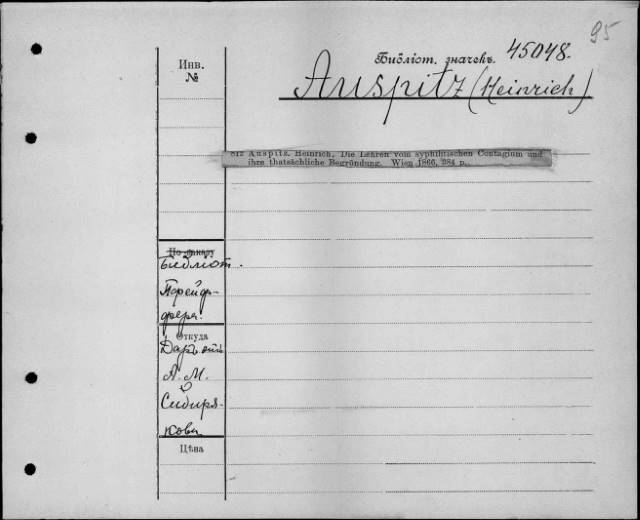 95
Библіот. значекъ 45048.
Auspitz (Heinrich)
Инв.
№
812 Auspitz, Heinrich, Die Lehren vom syphilitischen Contagium und
ihre thatsächliche Begründung. Wien 1866, 384 p.
По заказу
Библіот.
Пфейф-
фера.
Откуда
Даръ
А. М.
Сибиря-
кова
Цѣна